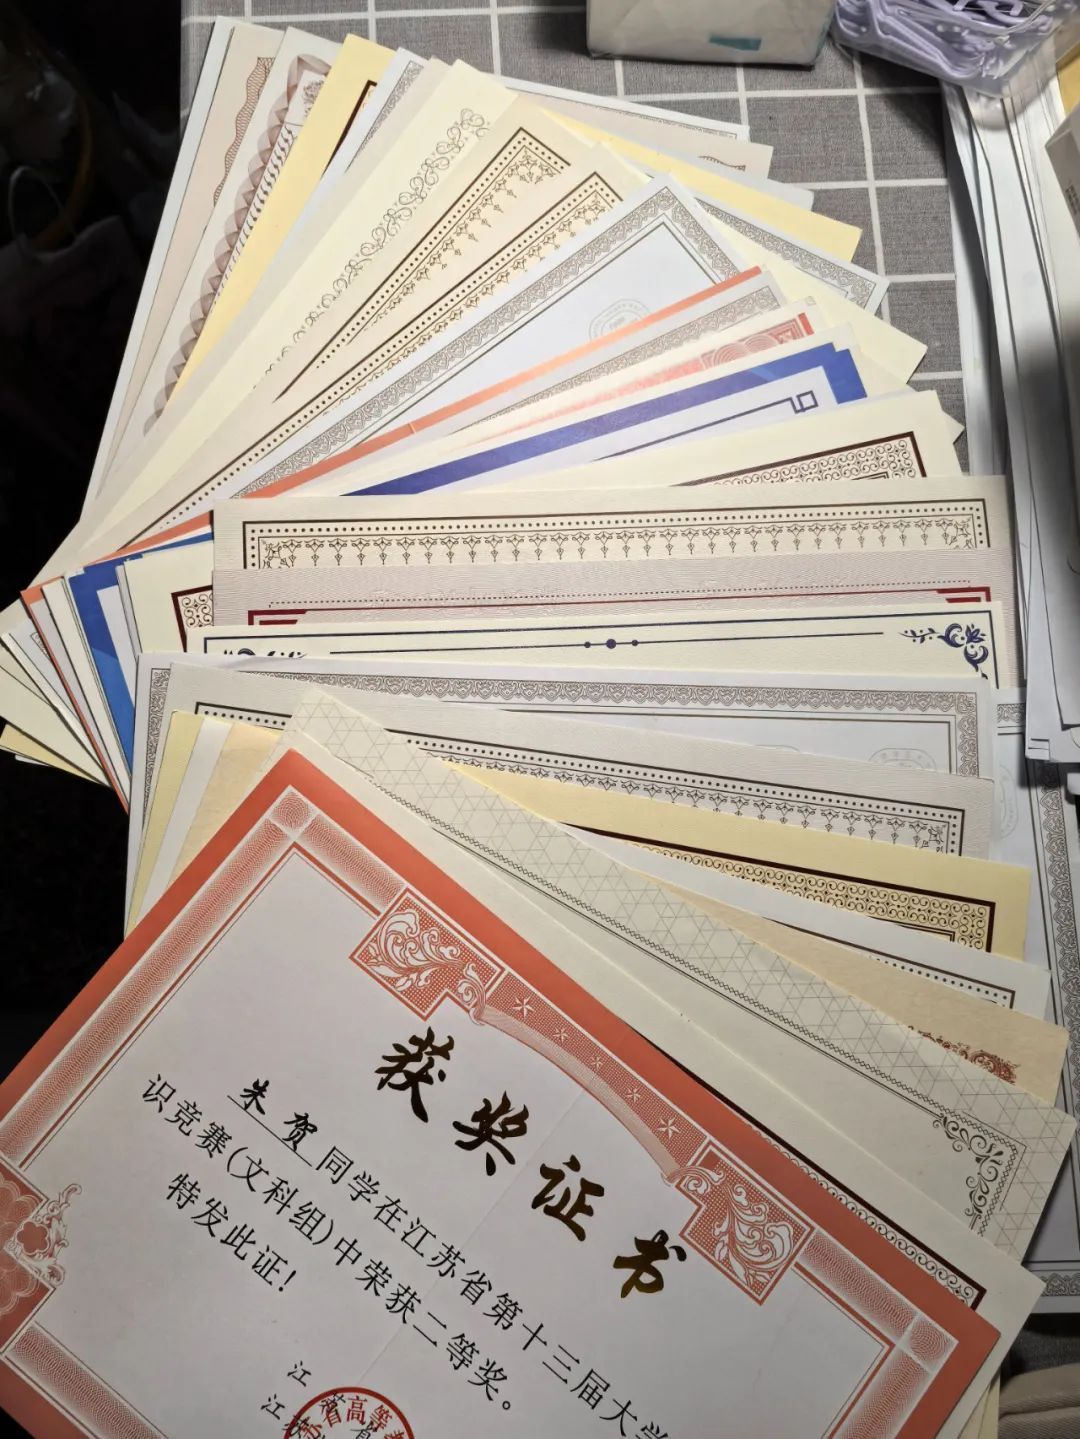 获奖证书
朱贺 同学在江苏省第十三届大学
识竞赛(文科组)中荣获二等奖。
特发此证!
江苏省高等
江苏